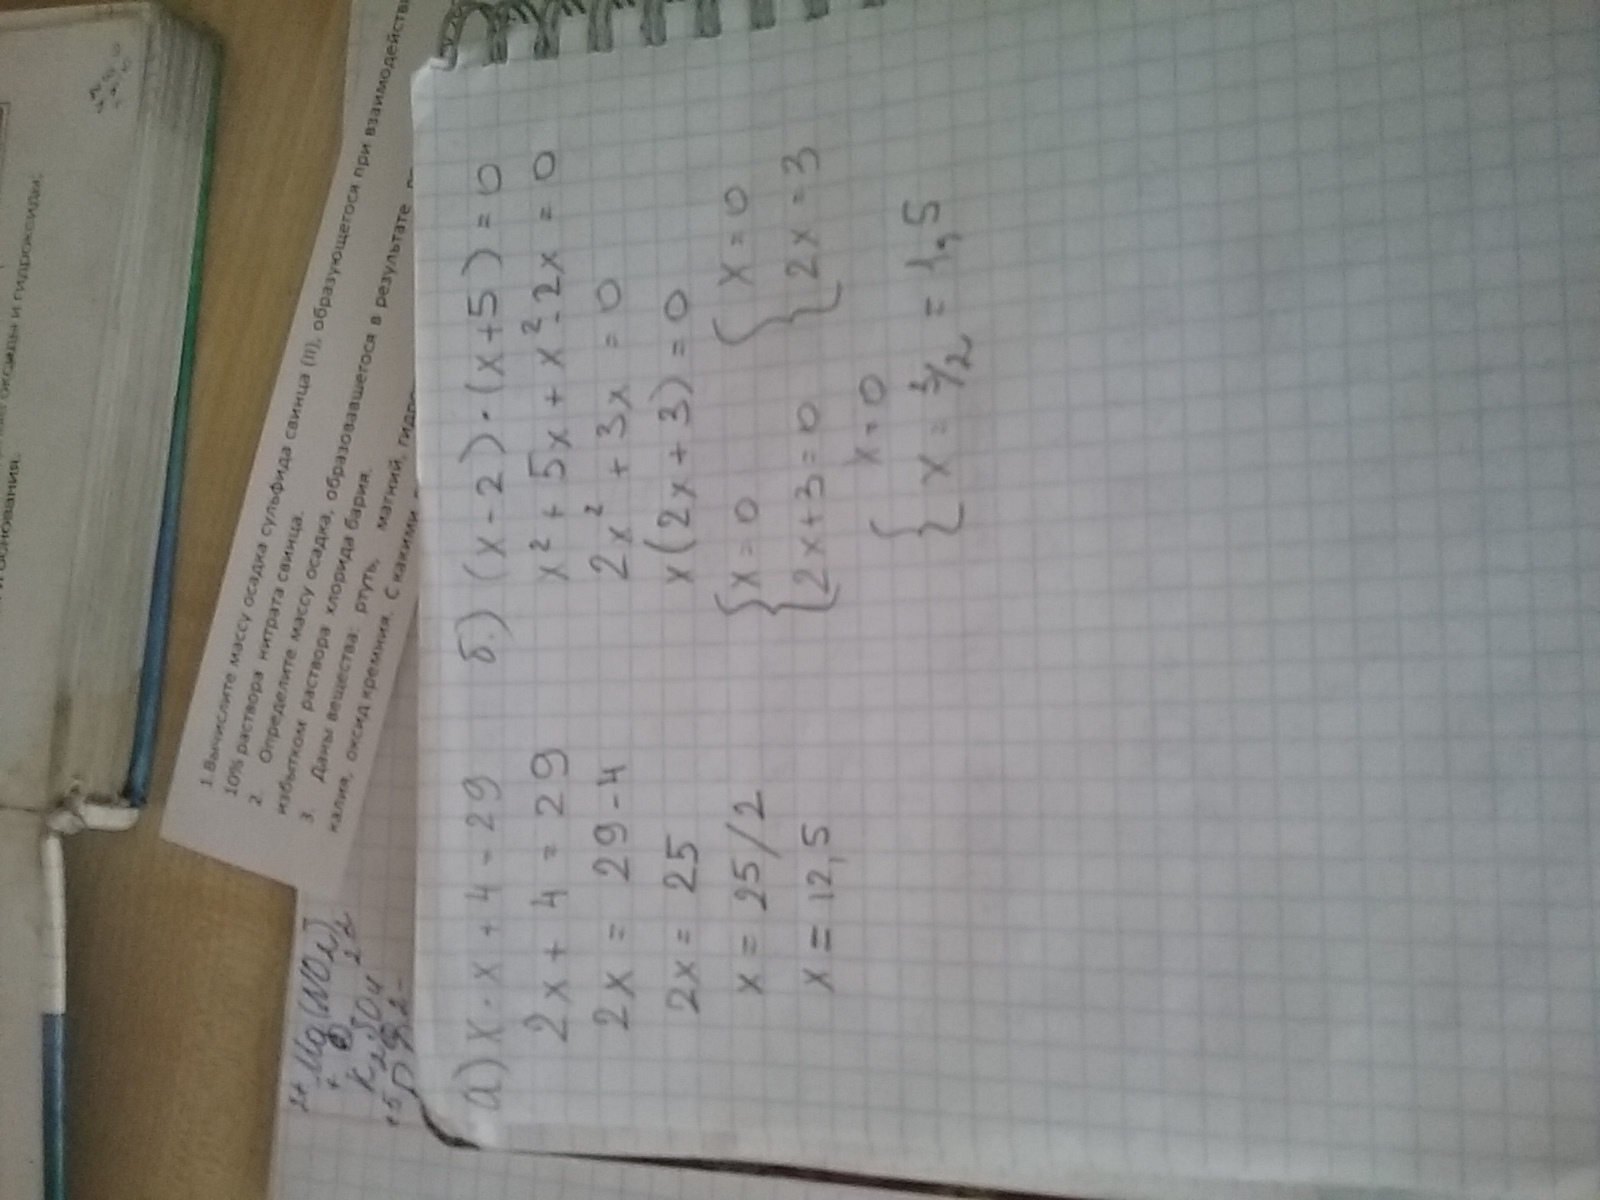 оксиды и гидроксиды:
основания.
1.Вычислите массу осадка сульфида свинца (II), образующегося при взаимодейств
10% раствора нитрата свинца.
2. Определите массу осадка, образовавшегося в результате
избытком раствора хлорида бария.
3. Даны вещества: ртуть, магний, гидро
калия, оксид кремния. С какими
а) x · x + 4 - 29
2x + 4 = 29
2x = 29-4
2x = 25
x = 25/2
x = 12,5
б.) (x-2)·(x+5)=0
x² + 5x + x² - 2x = 0
2x² + 3x = 0
x(2x+3)=0
{x=0 {x=0
{2x+3=0 {2x=3
{x=0
{x=3/2 = 1,5